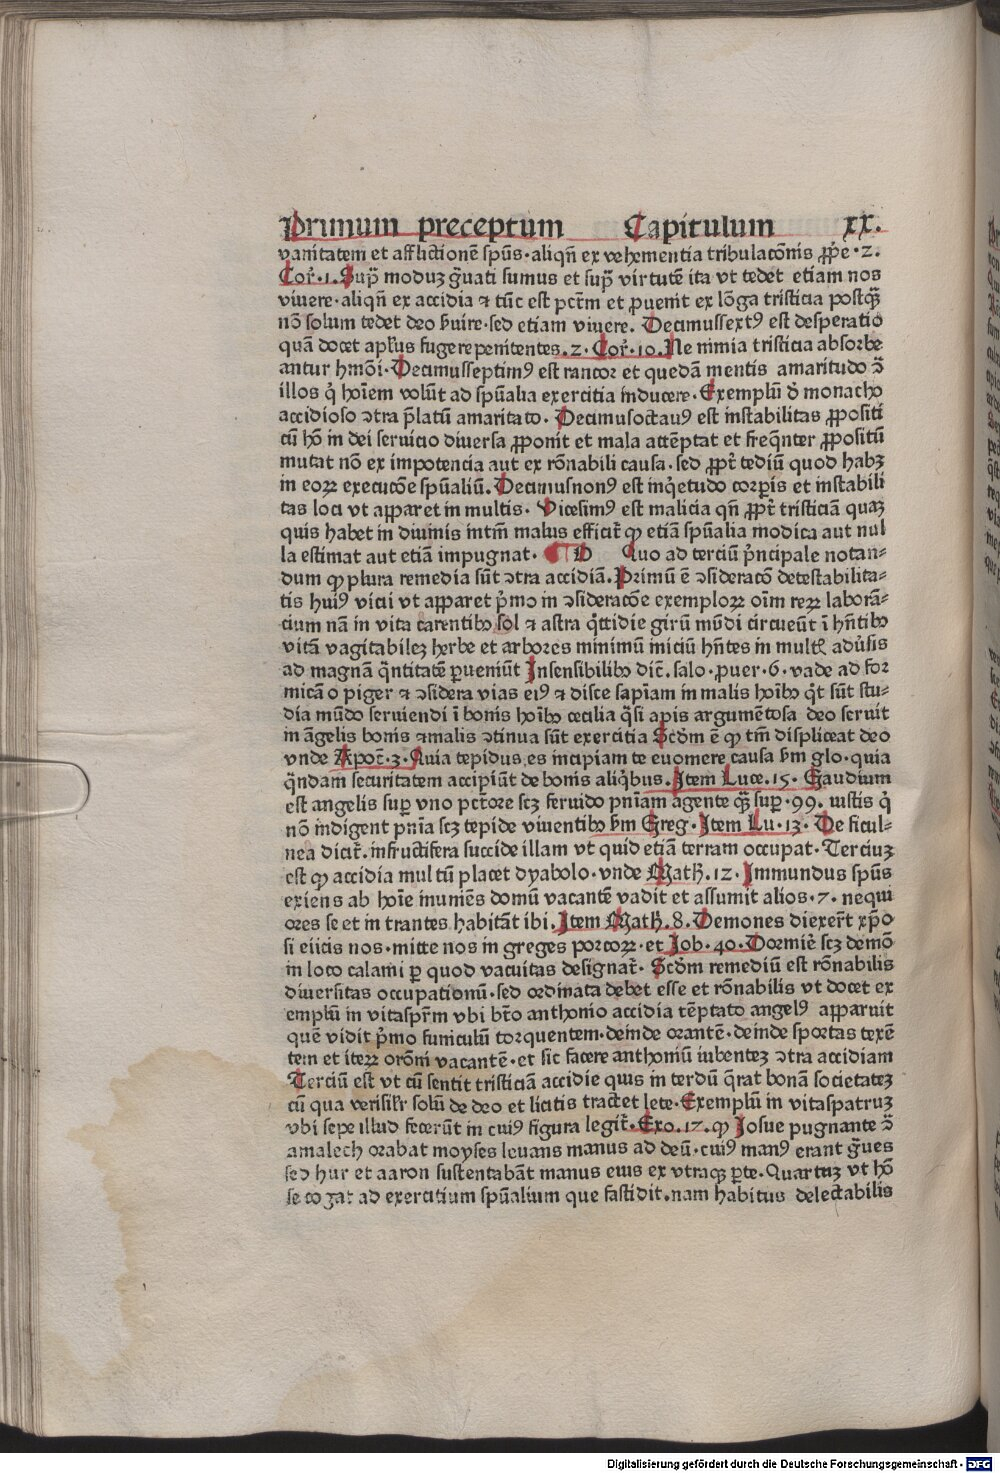 Primum preceptum Capitulum xx.
vanitatem et afflictionē spūs·aliqn̄ ex vehementia tribulacōnis ꝓp̄e·2.
Cor̄·1.Sup̄ moduʒ ḡuati sumus et sup̄ virtutē ita vt tedet etiam nos
viuere·aliqn̄ ex accidia ⁊ tūc est pctm̄ et ꝓuenit ex lōga tristicia postꝙ̄
nō solum tedet deo ẜuire·sed etiam viuere. Decimussextꝰ est desperatio
quā docet apl̄us fugere penitentes.2·Cor̄·10.Ne nimia tristicia absorbe
antur hmōi·Decimusseptimꝰ est rancor et quedā mentis amaritudo ↄ̄
illos q̇ hoīem volūt ad spūalia exercitia inducere·Exemplū d̄ monacho
accidioso ↄtra p̄latū amaritato·Decimusoctauꝰ est instabilitas ꝓpositi
cū hō in dei seruicio diuersa ꝓponit et mala attēptat et freq̄nter ꝓpositū
mutat nō ex impotencia aut ex rōnabili causa·sed ꝓpt̄ tediū quod habʒ
in eoꝝ execucōe spūaliū.Decimusnonꝰ est inq̇etudo corꝑis et instabili
tas loci vt apparet in multis· Vicesimꝰ est malicia qn̄ ꝓpt̄ tristiciā quaʒ
quis habet in diuinis intm̄ malus efficit̄ ꝙ etiā spūalia modica aut nul
la estimat aut etiā impugnat· ¶ D Quo ad terciū p̄ncipale notan⸗
dum ꝙ plura remedia sūt ↄtra accidiā.Primū ē ↄsideracō detestabilita⸗
tis huiꝰ vicii vt apparet p̄mo in ↄsideracōe exemploꝝ oīm reꝝ laborā⸗
cium nā in vita carentibꝰ sol ⁊ astra q̄ttidie girū mūdi circueūt ī hn̄tibꝰ
vitā vagitabileʒ herbe et arbores minimū iniciū hn̄tes in multꝭ adūsis
ad magnā q̄ntitatē ꝑueniūt Insensibilibꝰ dic̄t.salo·ꝓuer·6·vade ad for
micā o piger ⁊ ↄsidera vias eiꝰ ⁊ disce sapīam in malis hoībꝰ q̇t sūt stu⸗
dia mūdo seruiendi ī bonis hoībꝰ cecilia q̄si apis argumētosa deo seruit
in āgelis bonis ⁊malis ↄtinua sūt exercitia Scd̄m ē ꝙ tm̄ displiceat deo
vnde Apoc̄·3·Quia tepidus es incipiam te euomere causa ẜm glo·quia
q̄ndam securitatem accipiūt de bonis aliq̇bus.Item Luce.15· Gaudium
est angelis suꝑ vno pctore scʒ feruido pn̄iam agente ꝙ̄ suꝑ·99. iustis q̇
nō indigent pn̄ia scʒ tepide viuentibꝰ ẜm Greg·Item Lu·13·De ficul⸗
nea dicit̄.infructifera succide illam vt quid etiā terram occupat·Terciuʒ
est ꝙ accidia multū placet dyabolo·vnde Math̄.12·Immundus spūs
exiens ab hoīe inueniēs domū vacantē vadit et assumit alios·7·nequi
ores se et in trantes habitāt ibi.Item Math̄.8.Demones dixer̄t xp̄o
si eiicis nos·mitte nos in greges porcoꝝ·et Job·40·Dormiē scʒ demō
in loco calami ꝑ quod vacuitas designat̄·Scd̄m remediū est rōnabilis
diuersitas occupationū·sed ordinata debet esse et rōnabilis vt docet ex
emplū in vitaspr̄m vbi br̄to anthonio accidia tēptato angelꝰ apparuit
quē vidit p̄mo funiculū torquentem·deinde orantē·deinde sportas texē
tem et iteꝝ orōni vacantē·et sic facere anthoniū iubenteʒ ↄtra accidiam
Terciū est vt cū sentit tristiciā accidie quis in terdū q̄rat bonā societateʒ
cū qua verisil̄r solū de deo et licitis tractet lete·Exemplū in vitaspatruʒ
vbi sepe illud fecerūt in cuiꝰ figura legit̄·Exo.17.ꝙ Josue pugnante ↄ̄
amalech orabat moyses leuans manus ad deū·cuiꝰ manꝰ erant ḡues
sed hur et aaron sustentabāt manus eius ex vtraqꝫ ꝑte·Quartuʒ vt hō
se cogat ad exercitium spūalium que fastidit·nam habitus delectabilis
Digitalisierung gefördert durch die Deutsche Forschungsgemeinschaft - DFG